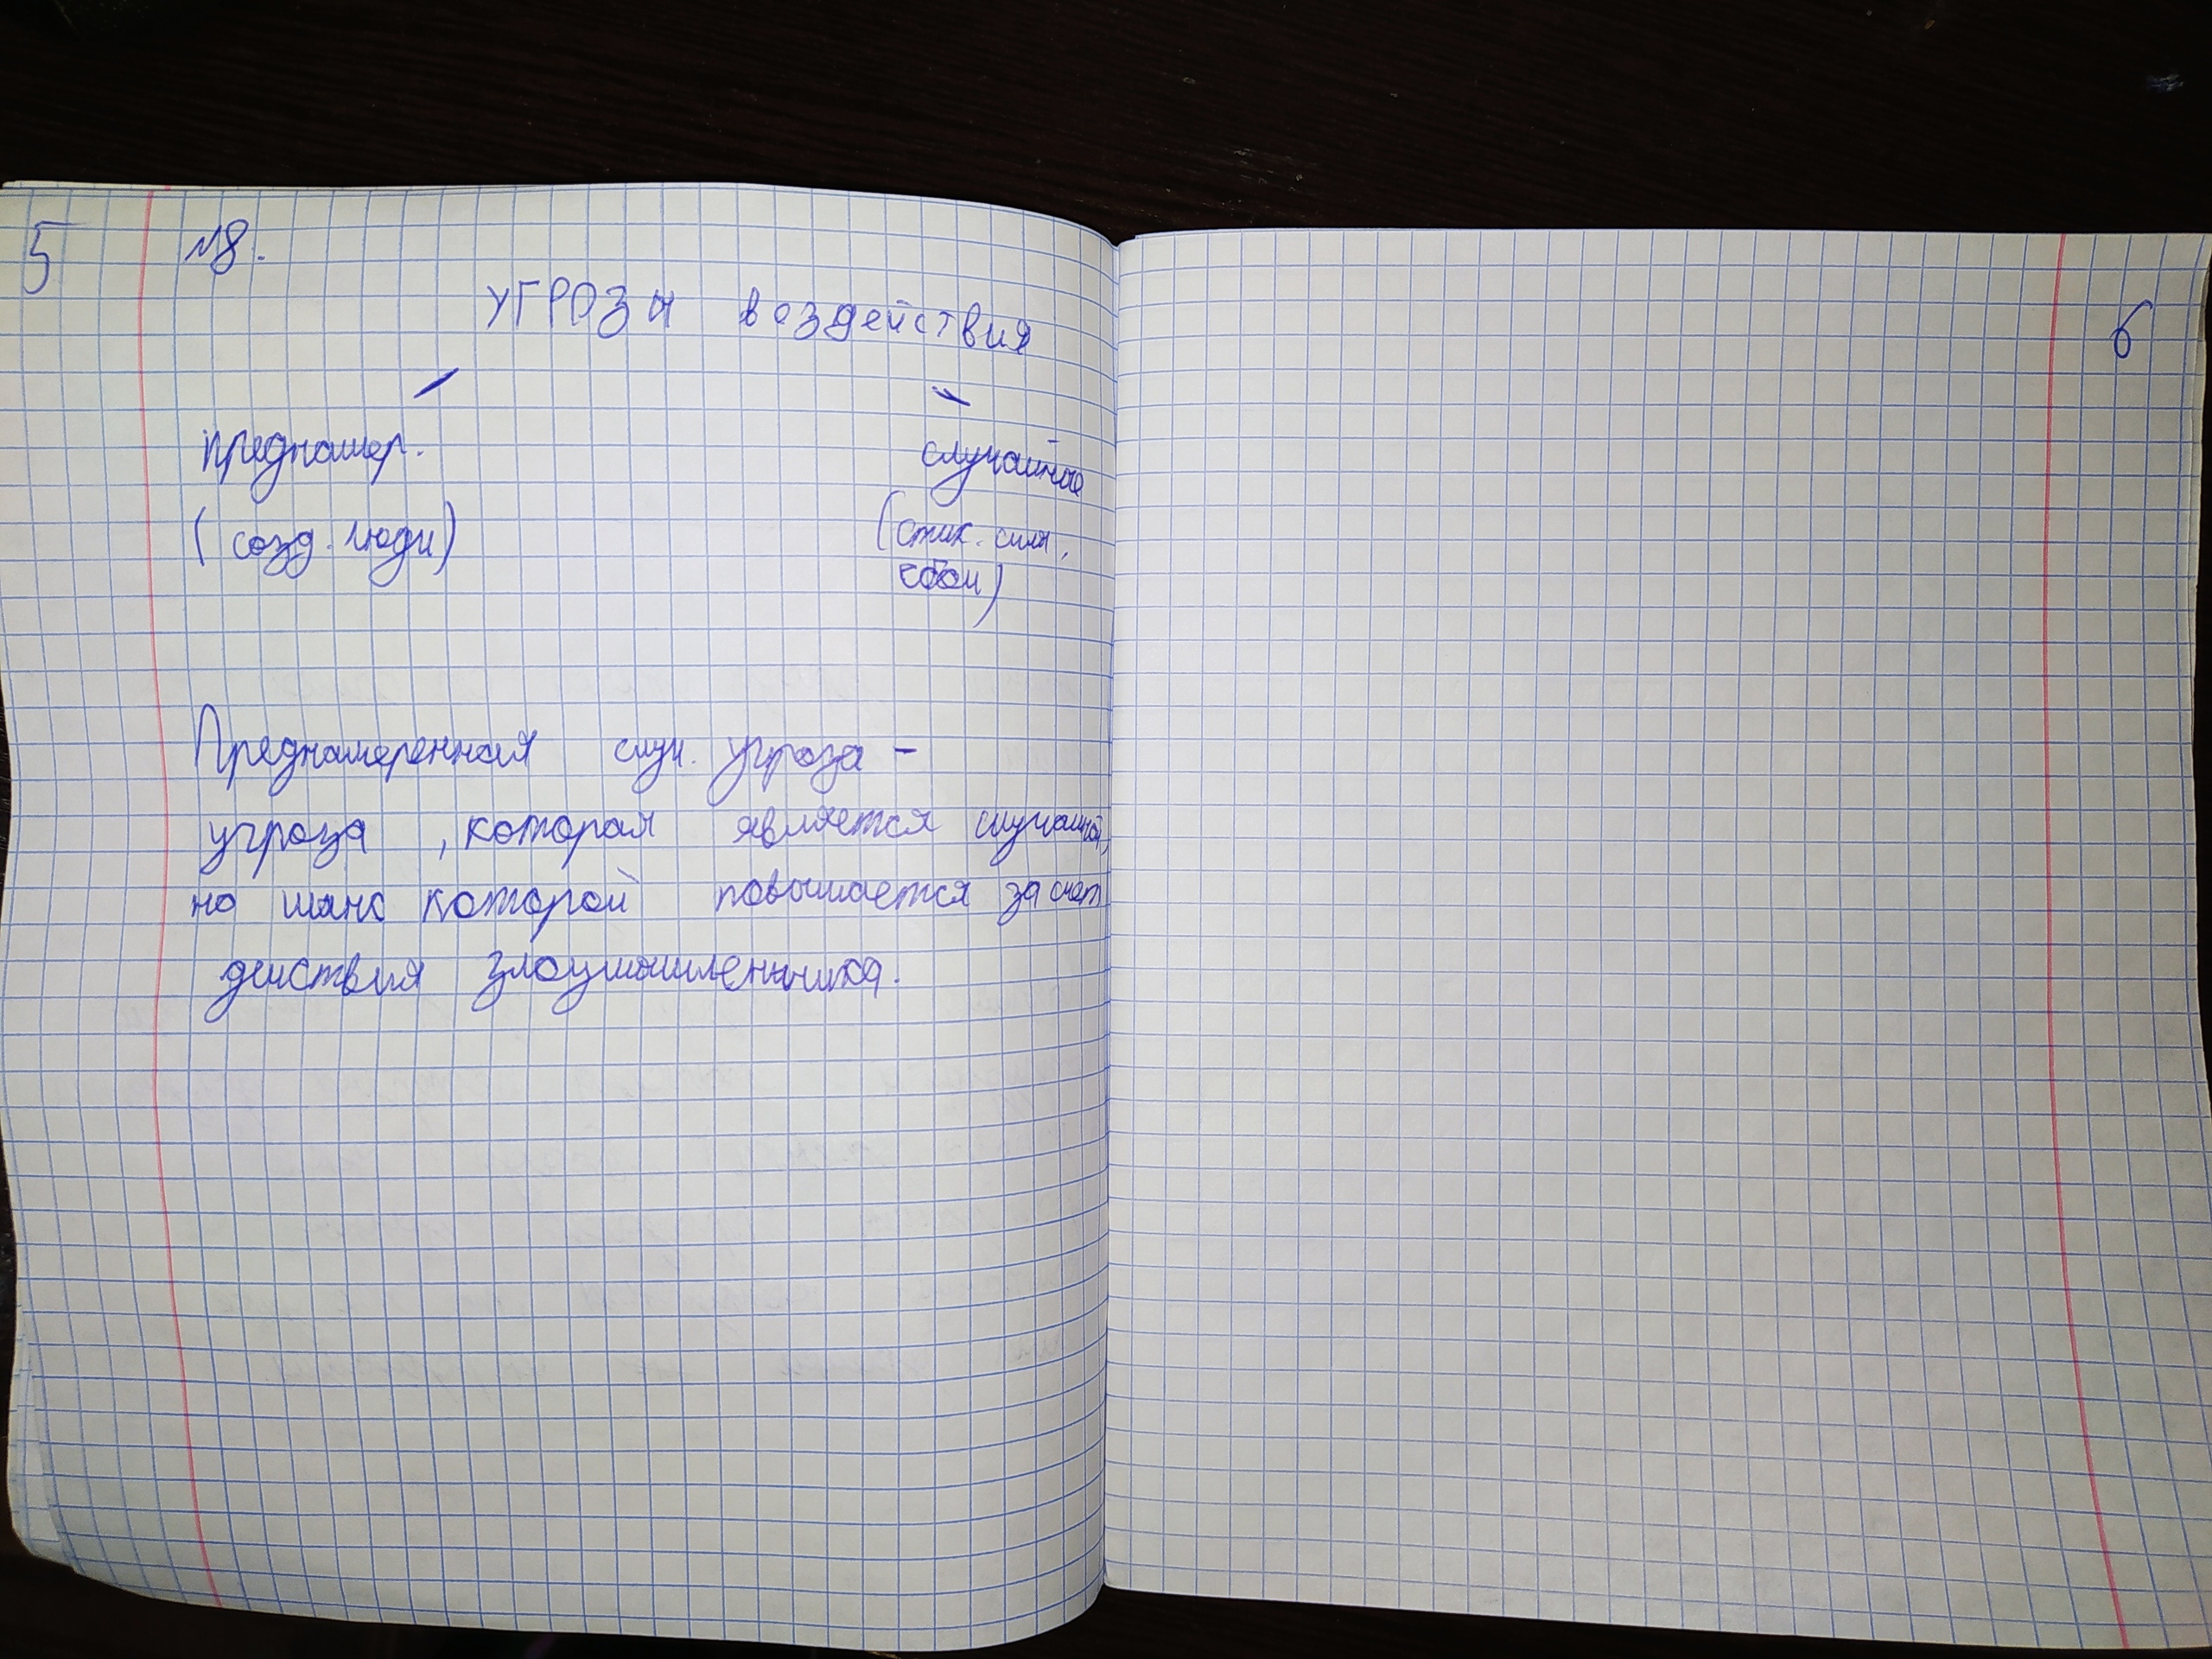 5
№8.
УГРОЗЫ воздействия
преднамер. случайные
(созд. люди) (стих. силы,
сбои)
Преднамеренная случ. угроза -
угроза, которая является случайной,
но шанс которой повышается за счет
действия злоумышленника.
6